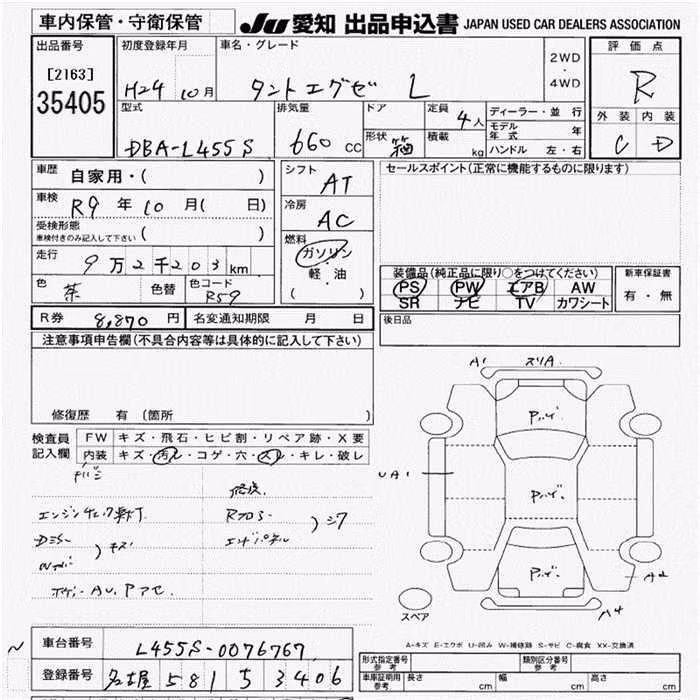 車内保管・守衛保管
JU 愛知 出品申込書 JAPAN USED CAR DEALERS ASSOCIATION
出品番号
[2163]
35405
初度登録年月
H24 10月
車名・グレード
タントエグゼ L
2WD
・
4WD
評価点
R
外装 内装
C D
型式
DBA-L455S
排気量
660 CC
ドア
形状 箱
定員 4人
積載 kg
ディーラー・並行
モデル年式 年
ハンドル 左・右
車歴 自家用・( )
車検 R9年10月( 日)
受検形態
車検付きのみ記入して下さい ( )
走行 9万2千203km
色 茶 色替 色コード R59
シフト AT
冷房 AC
燃料
ガソリン
軽・油
( )
セールスポイント(正常に機能するものに限ります)
装備品(純正品に限り○をつけてください)
PS PW エアB AW
SR ナビ TV カワシート
新車保証書
有・無
R券 8,870円 名変通知期限 月 日
後日品
注意事項申告欄(不具合内容等は具体的に記入して下さい)
修復歴 有 (箇所 )
検査員記入欄
FW キズ・飛石・ヒビ割・リペア跡・X要
内装 キズ・汚レ・コゲ・穴・スレ・キレ・破レ
修復
エンジンチェック点灯
Dミラー
キズ
A1 スリA
UA1
A2
A4
スペア
A-キズ E-エクボ U-凹み W-補修跡 S-サビ C-腐食 XX-交換済
車台番号 L455S-0076767
登録番号 名古屋 581 ち 3406
形式指定番号 参考
類別区分番号 参考
車庫証明用 参考 長さ cm 幅 cm 高さ cm